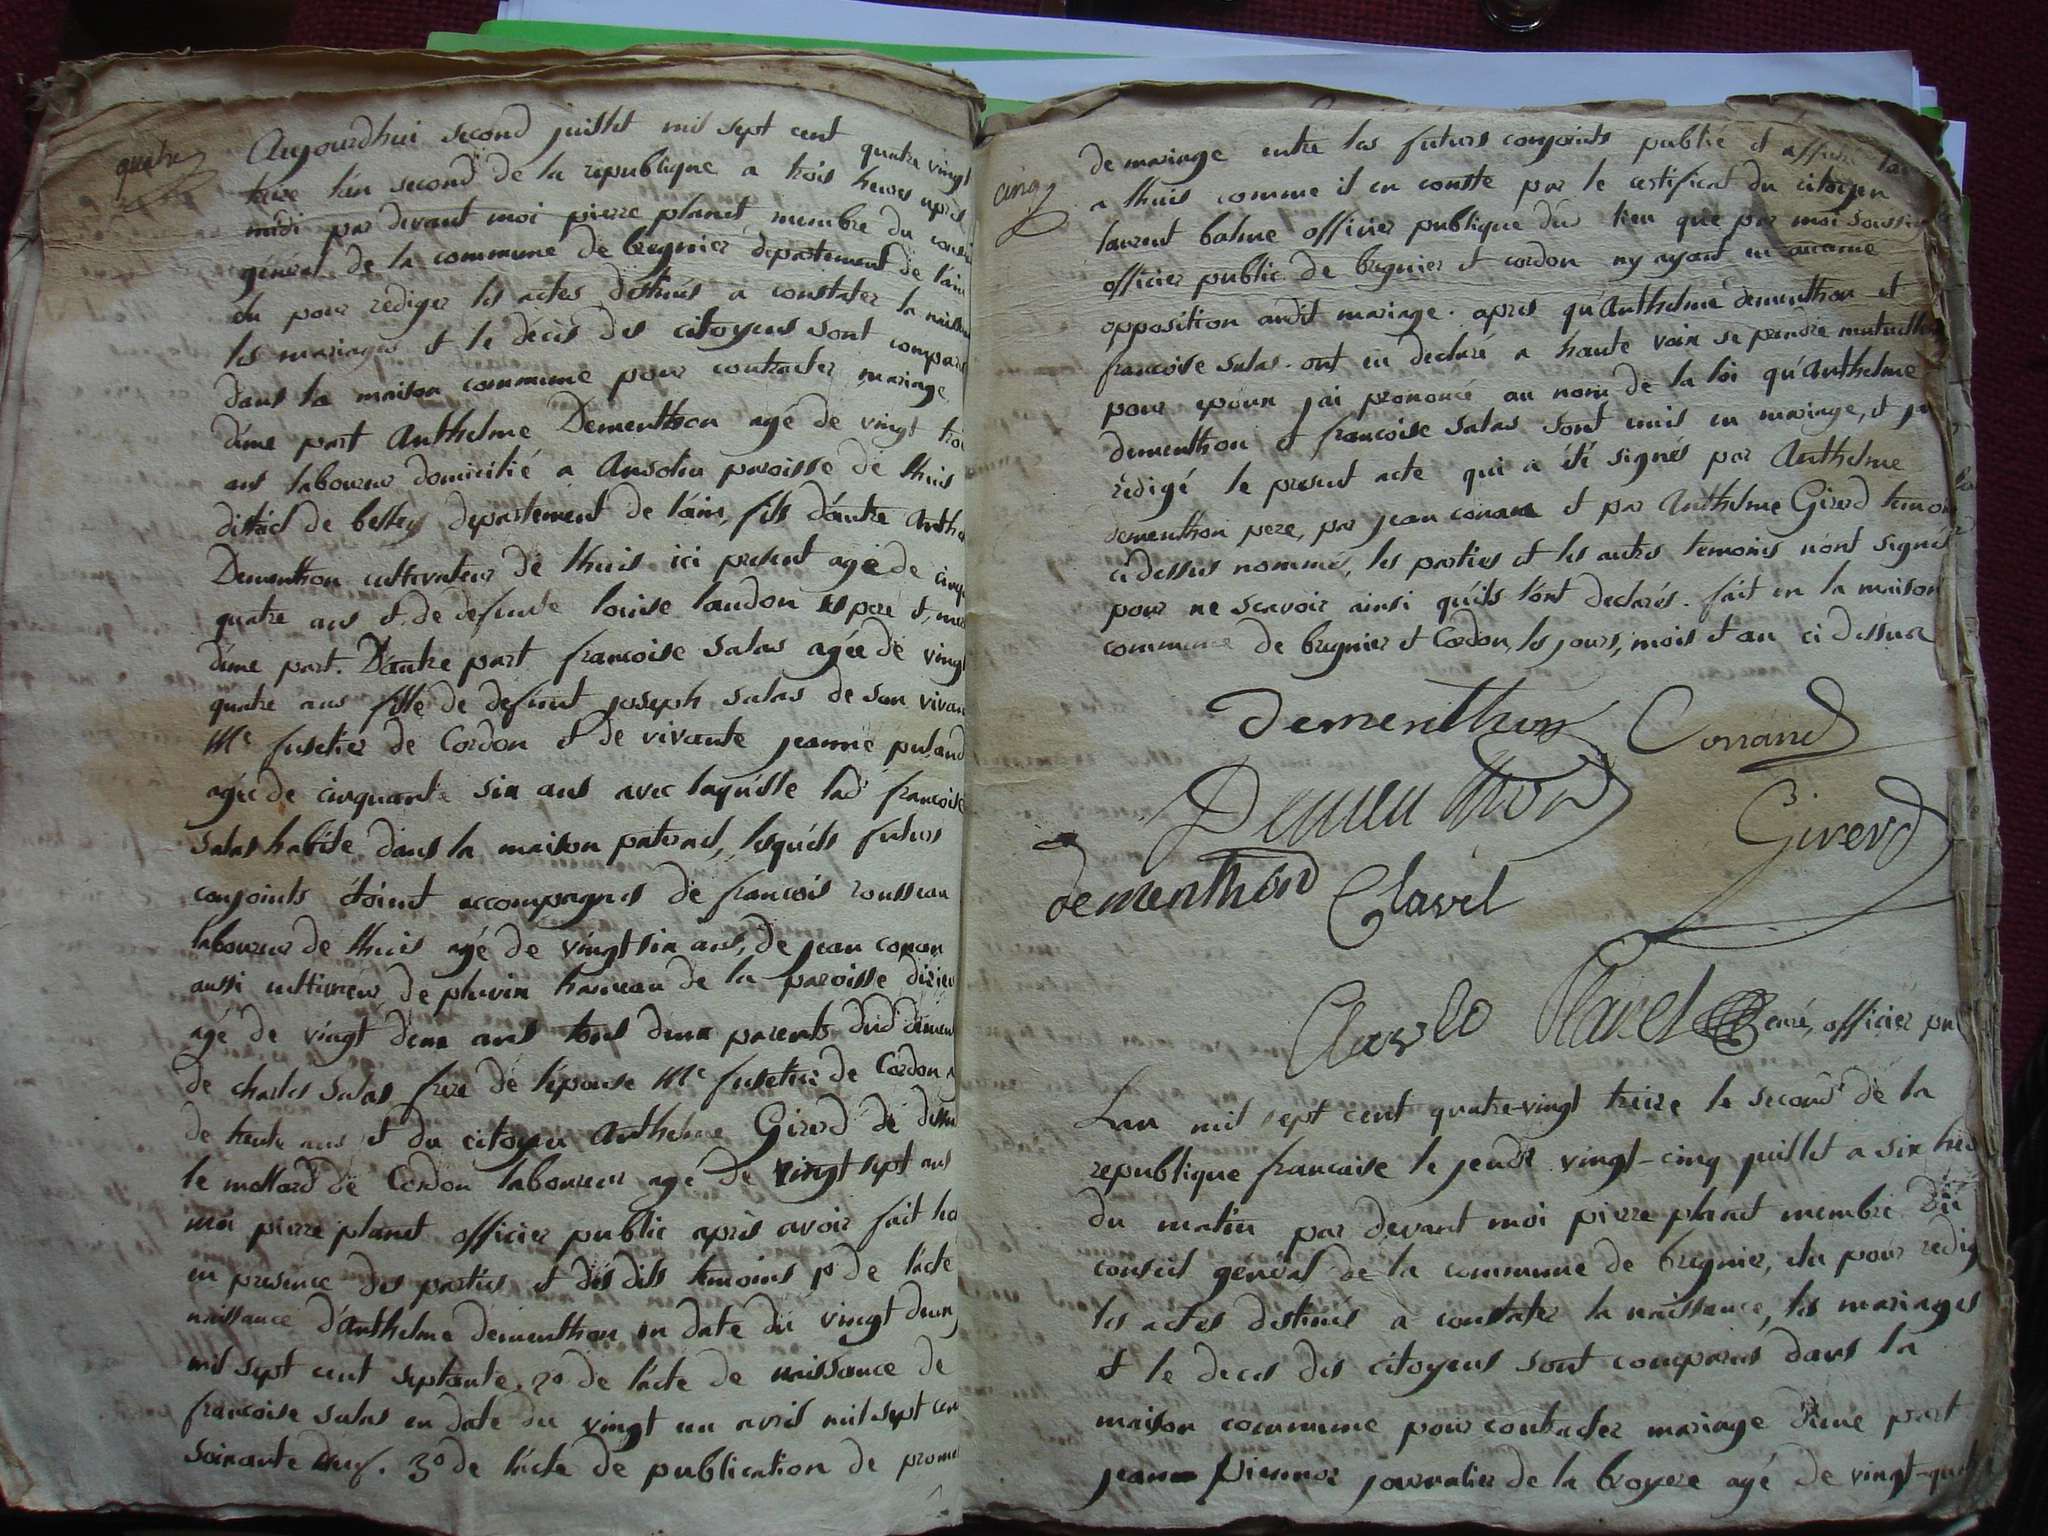 quatre
Aujourdhui second juillet mil sept cent quatre vingt
treize l'an second de la république a trois heures après
midi par devant moi pierre planet membre du conseil
général de la commune de bregnier département de l'ain
élu pour rediger les actes destinés a constater la naissan
les mariages et le décès des citoyens sont comparus
dans la maison commune pour contracter mariage
d'une part Anthelme Dementhon agé de vingt trois
ans laboureur domicilié a Ansolin paroisse de thuis
district de belley département de l'ain, fils d'autre Anthe
Dementhon cultivateur de thuis ici present agé de cinqu
quatre ans et de defunte louise laudon ses pere et mere
d'une part. D'autre part francoise salas agée de vingt
quatre ans fille de defunt joseph salas de son vivant
Me fusetier de Cordon et de vivante jeanne puland
agée de cinquante six ans avec laquelle lad' francoise
salas habite dans la maison paternel, lesquels futurs
conjoints étoient accompagnés de francois rousseau
laboureur de thuis agé de vingt six ans, de jean conan
aussi cultivateur de pluvin hameau de la paroisse dizieu
agé de vingt deux ans tous deux parents dud' dement
de charles salas frere de l'épouse Me fusetier de Cordon a
de trente ans et du citoyen Anthelme Girerd de dessus
le mollard de Cordon laboureur agé de vingt sept ans
moi pierre planet officier public après avoir fait
en presence des parties et des dits temoins 1o de l'acte
naissance d'Anthelme dementhon en date du vingt deux
mil sept cent septante. 2o de l'acte de naissance de
francoise salas en date du vingt un avril mil sept cent
soixante neuf. 3o de l'acte de publication de prome
cinq
de mariage entre les futurs conjoints publié et affiché tant
a thuis comme il en conste par le certificat du citoyen
laurent balme officier publique dud' lieu que par moi soussigné
officier public de bregnier et cordon ny ayant eu aucune
opposition audit mariage. apres qu'Anthelme dementhon et
francoise salas ont eu declaré a haute voix se prendre mutuellem
pour epoux j'ai prononcé au nom de la loi qu'Anthelme
dementhon et francoise salas sont unis en mariage, et j'ai
rédigé le present acte qui a été signés par Anthelme
dementhon pere, par jean conan et par Anthelme Girerd temoins
ci dessus nommés, les parties et les autres temoins n'ont signés
pour ne scavoir ainsi qu'ils l'ont declarés. fait en la maison
commune de bregnier et Cordon, les jours, mois et an ci dessus
dementhon Conand
Dementhon Girerd
dementhon Clavel
Clavel Planet curé, officier pu
Lan mil sept cent quatre-vingt treize le second de la
republique francaise le jeudi vingt-cinq juillet a six heu
du matin par devant moi pierre planet membre du
conseil général de la commune de bregnier, élu pour redig
les actes destinés a constater la naissance, les mariages
et le deces des citoyens sont comparus dans la
maison commune pour contracter mariage d'une part
jean journalier de la broyere agé de vingt-quatr